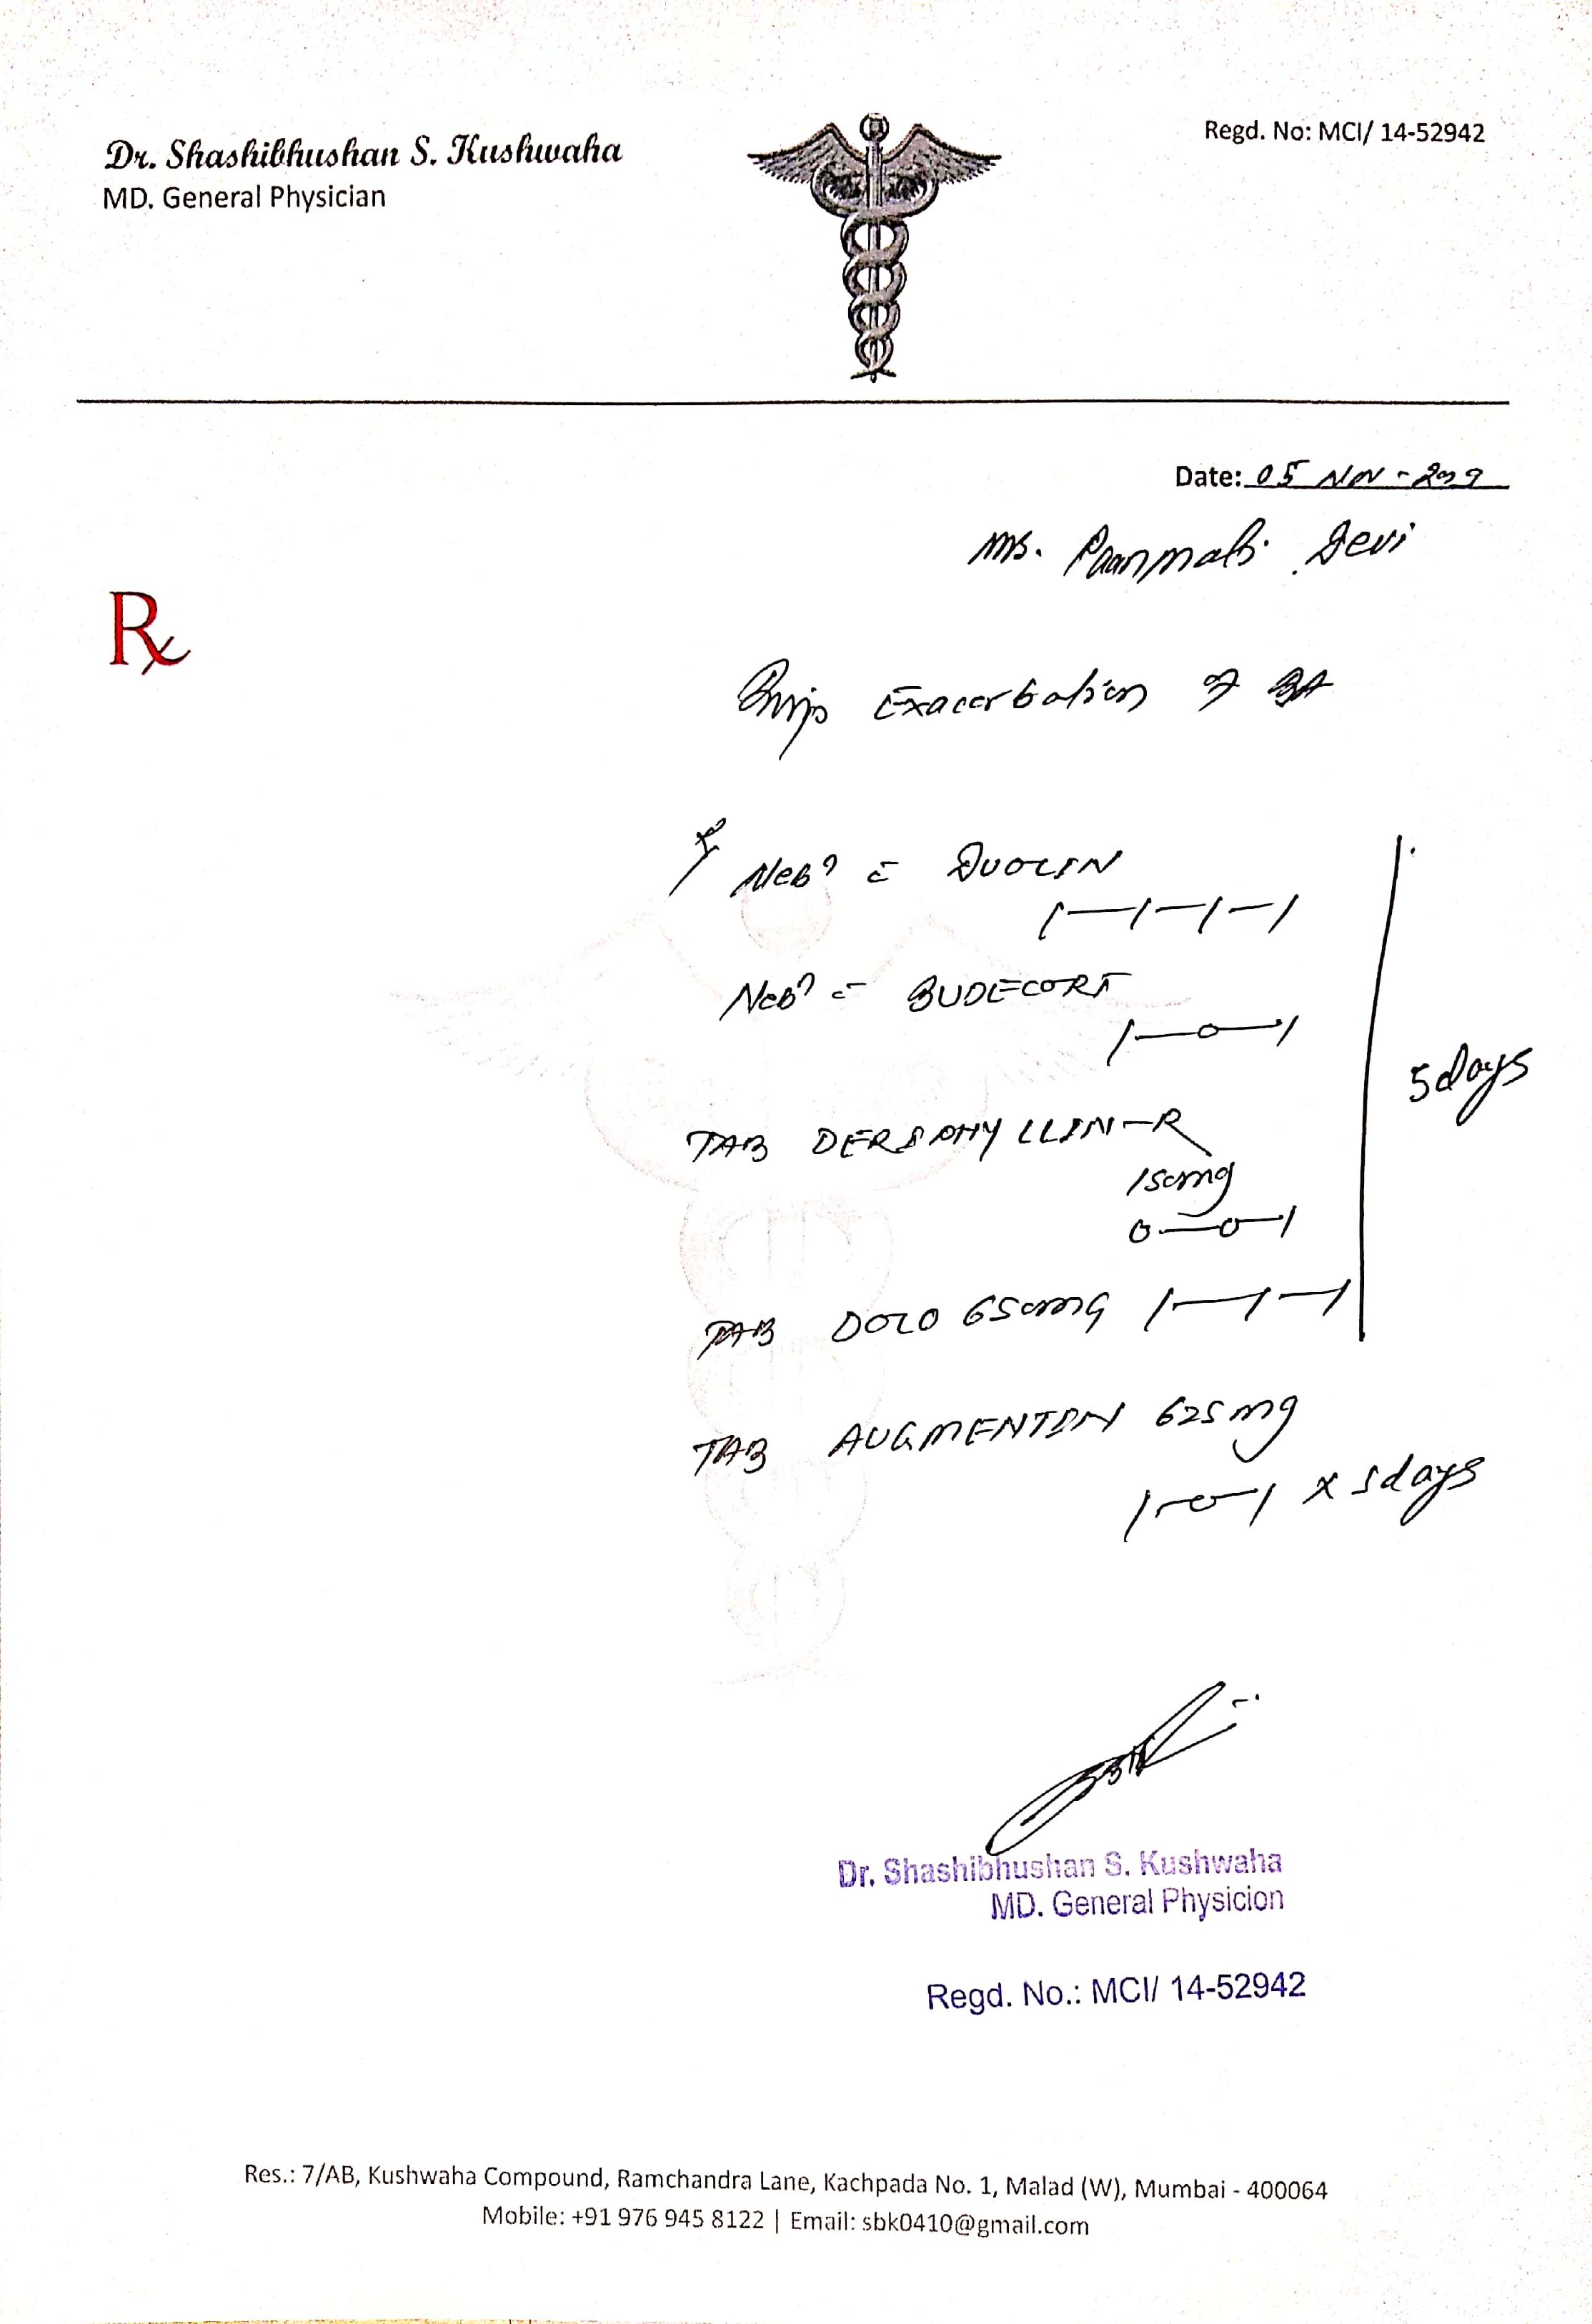 Dr. Shashibhushan S. Kushwaha
MD. General Physician
Regd. No: MCI/ 14-52942
Date: 05 Nov -
Ms. Paanmati Devi
Rx
Exacerbation of BA
Neb? c DUOLIN
1—1—1—1
Neb? c BUDECORT
1—0—1
TAB DERIPHYLLIN-R
150mg
0—0—1
TAB DOLO 650mg 1—1—1
5days
TAB AUGMENTIN 625mg
1—0—1 x 5days
Dr. Shashibhushan S. Kushwaha
MD. General Physicion
Regd. No.: MCI/ 14-52942
Res.: 7/AB, Kushwaha Compound, Ramchandra Lane, Kachpada No. 1, Malad (W), Mumbai - 400064
Mobile: +91 976 945 8122 | Email: sbk0410@gmail.com